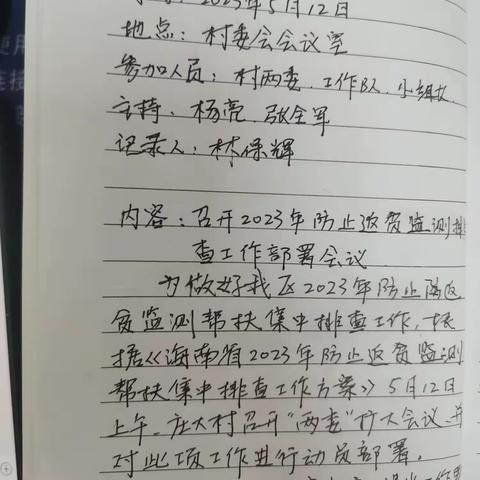 2023年5月12日
地点：村委会会议室
参加人员：村两委、工作队、小组长
主持：杨亮、张全军
记录人：林保辉
内容：召开2023年防止返贫监测排
查工作部署会议
为做好我区2023年防止返
贫监测帮扶集中排查工作，根
据《海南省2023年防止返贫监测
帮扶集中排查工作方案》5月12日
上午，庄大村召开“两委”扩大会议，并
对此项工作进行动员部署。